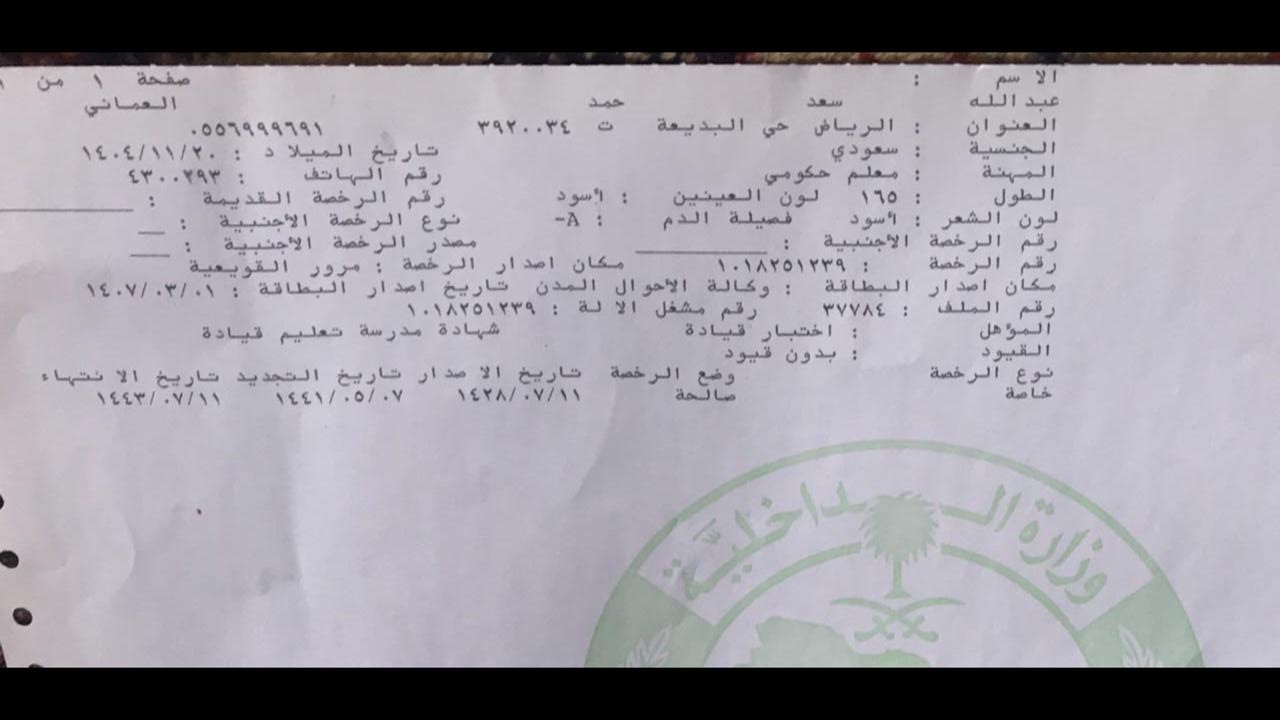 صفحة ١ من ١
الاسم :
عبدالله سعد حمد العماني
العنوان : الرياض حي البديعة ت ٣٩٢٠٠٣٤ ٠٥٥٦٩٩٩٦٩١
الجنسية : سعودي تاريخ الميلاد : ١٤٠٤/١١/٢٠
المهنة : معلم حكومي رقم الهاتف : ٤٣٠٠٢٩٣
الطول : ١٦٥ لون العينين : أسود رقم الرخصة القديمة :
لون الشعر : أسود فصيلة الدم : A- نوع الرخصة الأجنبية :
رقم الرخصة الأجنبية : مصدر الرخصة الأجنبية :
رقم الرخصة : ١٠١٨٢٥١٢٣٩ مكان اصدار الرخصة : مرور القويعية
مكان اصدار البطاقة : وكالة الأحوال المدن تاريخ اصدار البطاقة : ١٤٠٧/٠٣/٠١
رقم الملف : ٣٧٧٨٤ رقم مشغل الالة : ١٠١٨٢٥١٢٣٩
المؤهل : اختبار قيادة شهادة مدرسة تعليم قيادة
القيود : بدون قيود
نوع الرخصة وضع الرخصة تاريخ الاصدار تاريخ التجديد تاريخ الانتهاء
خاصة صالحة ١٤٢٨/٠٧/١١ ١٤٤١/٠٥/٠٧ ١٤٤٣/٠٧/١١
وزارة الداخلية